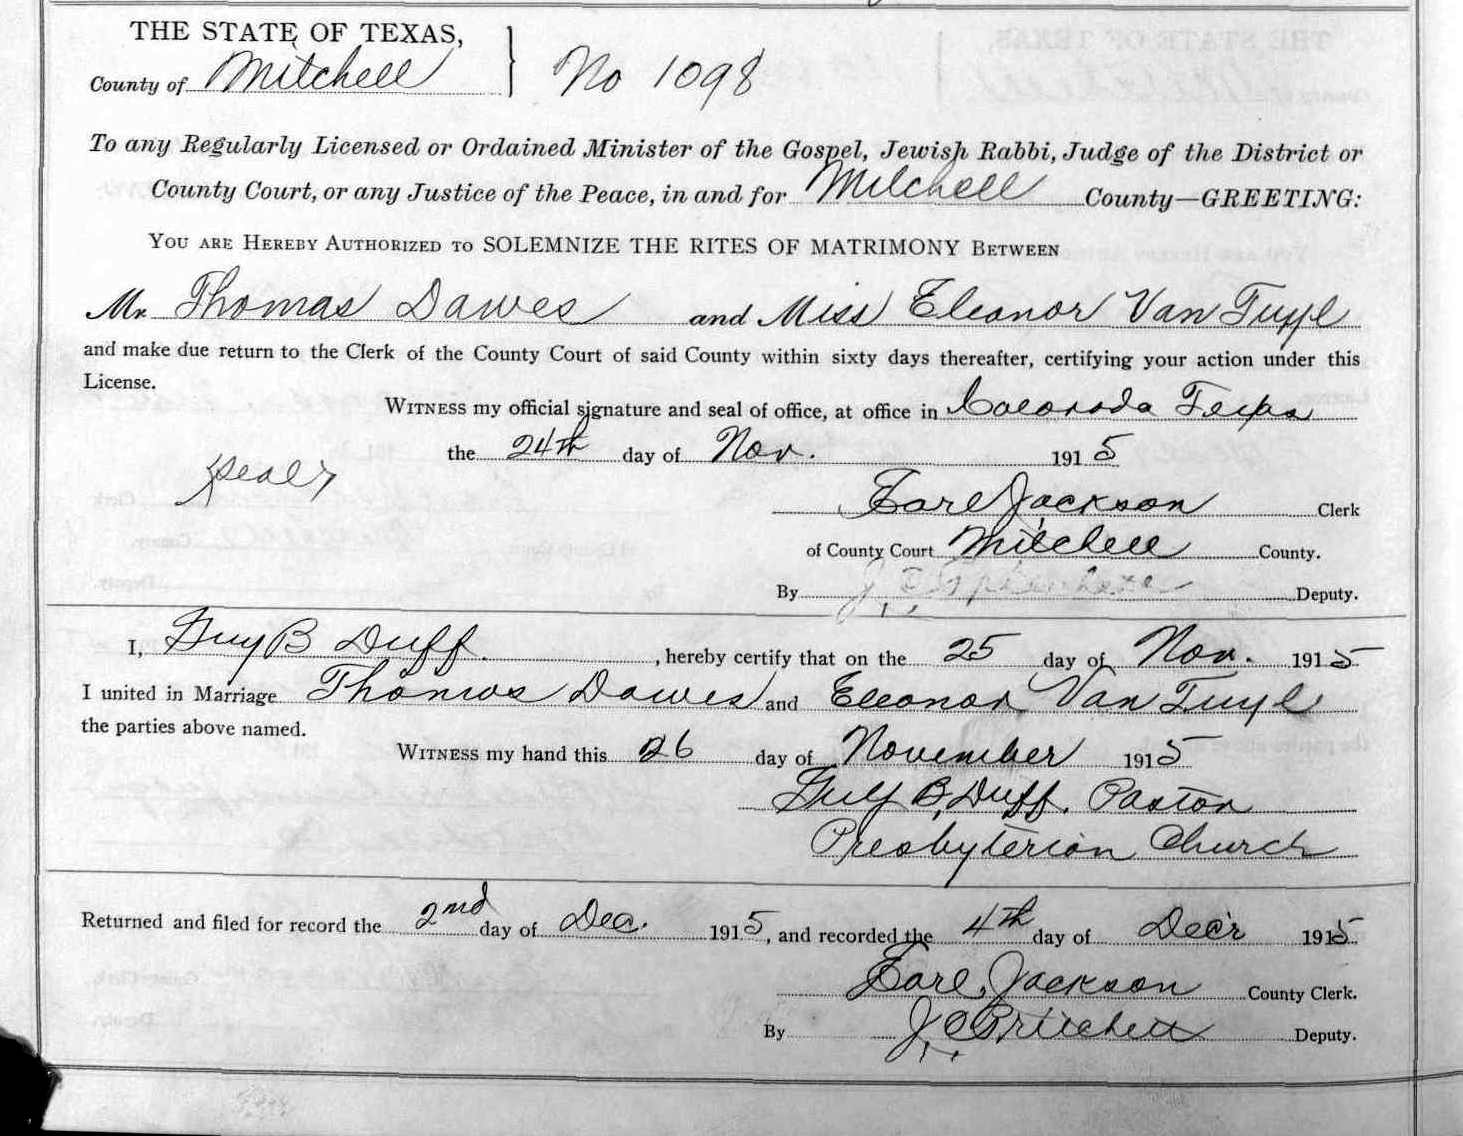 THE STATE OF TEXAS,
County of Mitchell } No 1098
To any Regularly Licensed or Ordained Minister of the Gospel, Jewish Rabbi, Judge of the District or
County Court, or any Justice of the Peace, in and for Mitchell County—GREETING:
YOU ARE HEREBY AUTHORIZED TO SOLEMNIZE THE RITES OF MATRIMONY BETWEEN
Mr. Thomas Dawes and Miss Eleonor Van Tuyl
and make due return to the Clerk of the County Court of said County within sixty days thereafter, certifying your action under this
License.
WITNESS my official signature and seal of office, at office in Colorado Texas
the 24th day of Nov. 1915
Seal
Earl Jackson Clerk
of County Court Mitchell County.
By J. Deputy.
I, Guy B Duff, hereby certify that on the 25 day of Nov. 1915
I united in Marriage Thomas Dawes and Eleonor Van Tuyl
the parties above named.
WITNESS my hand this 26 day of November 1915
Guy B. Duff. Pastor
Presbyterian Church
Returned and filed for record the 2nd day of Dec. 1915, and recorded the 4th day of Dec'r 1915
Earl Jackson County Clerk.
By J. C. Pritchett Deputy.